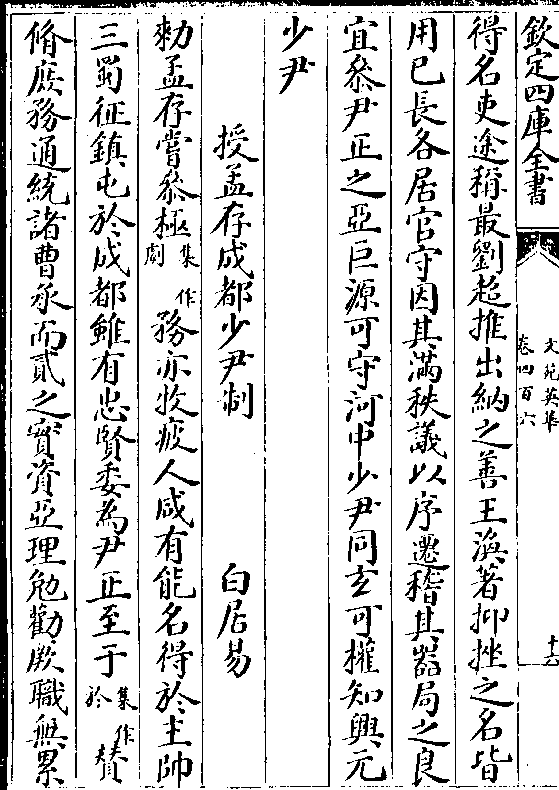 欽定四庫全書
文苑英華
卷四百六
十六
得名吏途稱最劉超推出納之善王渙著抑挫之名皆
用已長各居官守因其滿秩議以序遷稽其器局之良
宜叅尹正之亞巨源可守河中少尹同玄可權知興元
少尹
授孟存成都少尹制 白居易
勑孟存嘗叅極集作劇務亦牧疲人咸有能名得於主帥
三蜀征鎮屯於成都雖有忠賢委為尹正至于集作於贊
脩庶務通統諸曹承而貳之實資亞理勉勸厥職無累